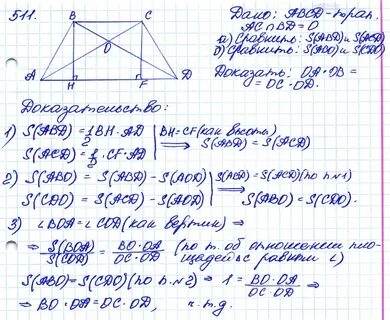 511.
B C
O
A H F D
Дано: ABCD - трап.
AC ∩ BD = O
а) Сравнить: S(ABD) и S(ACD)
б) Сравнить: S(ABO) и S(CDO)
Доказать: OA·OB =
= OC·OD.
Доказательство:
1) S(ABD) = 1/2 BH·AD | BH=CF (как высоты)
S(ACD) = 1/2 CF·AD | ⟹ S(ABD) = S(ACD)
2) S(ABO) = S(ABD) - S(AOD) | S(ABD) = S(ACD) (по п.№1)
S(CDO) = S(ACD) - S(AOD) | ⟹ S(ABO) = S(CDO).
3) ∠BOA = ∠COD (как вертик) ⟹
⟹ S(BOA)/S(COD) = BO·OA/OC·OD (по т. об отношении пло-
щадей с равным ∠)
S(ABO) = S(CDO) (по п.№2) ⟹ 1 = BO·OA/OC·OD ⟹
⟹ BO·OA = OC·OD, ч.т.д.